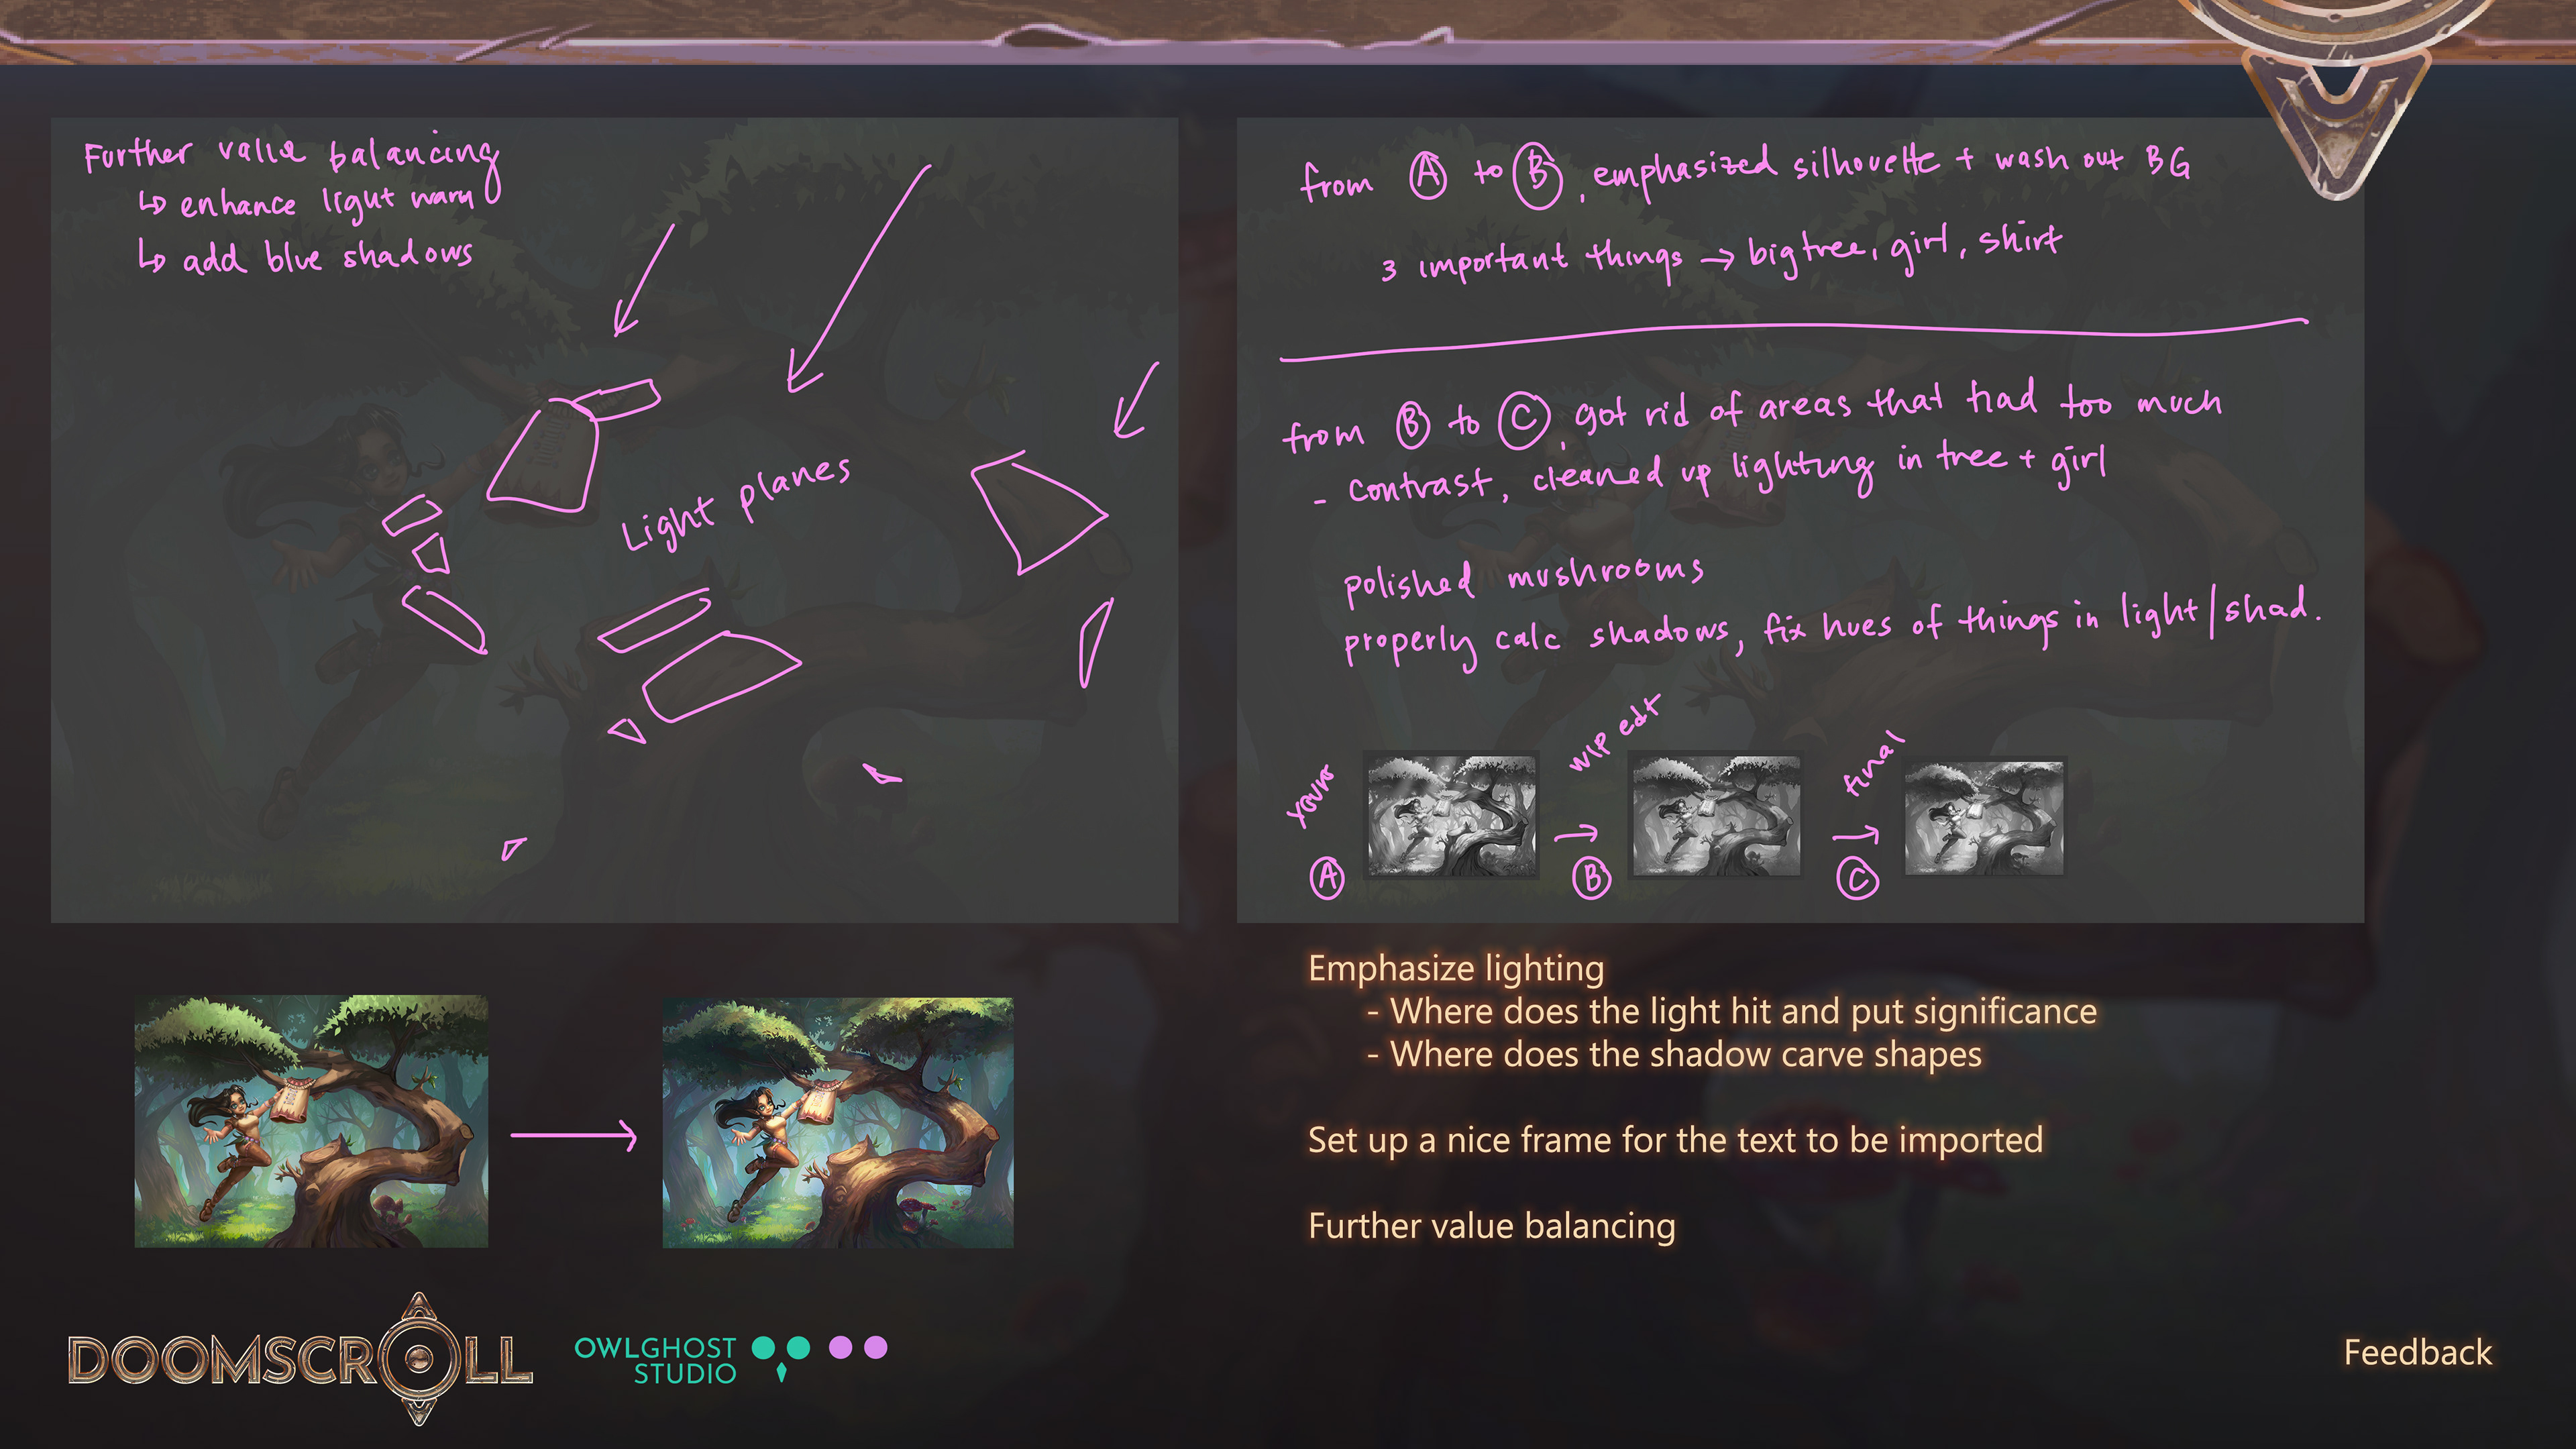 Further value balancing
↳ enhance light warm
↳ add blue shadows
Light planes
from A to B, emphasized silhouette + wash out BG
3 important things → big tree, girl, shirt
from B to C, got rid of areas that had too much
- contrast, cleaned up lighting in tree + girl
polished mushrooms
properly calc shadows, fix hues of things in light/shad.
yours
A
→
WIP edt
B
→
final
C
Emphasize lighting
- Where does the light hit and put significance
- Where does the shadow carve shapes
Set up a nice frame for the text to be imported
Further value balancing
DOOMSCROLL
OWLGHOST
STUDIO
Feedback